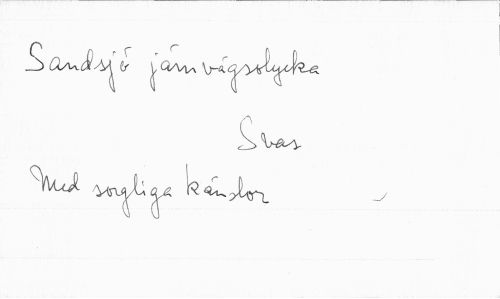 Sandsjö järnvägsolycka
Svas
Med sorgliga känslor